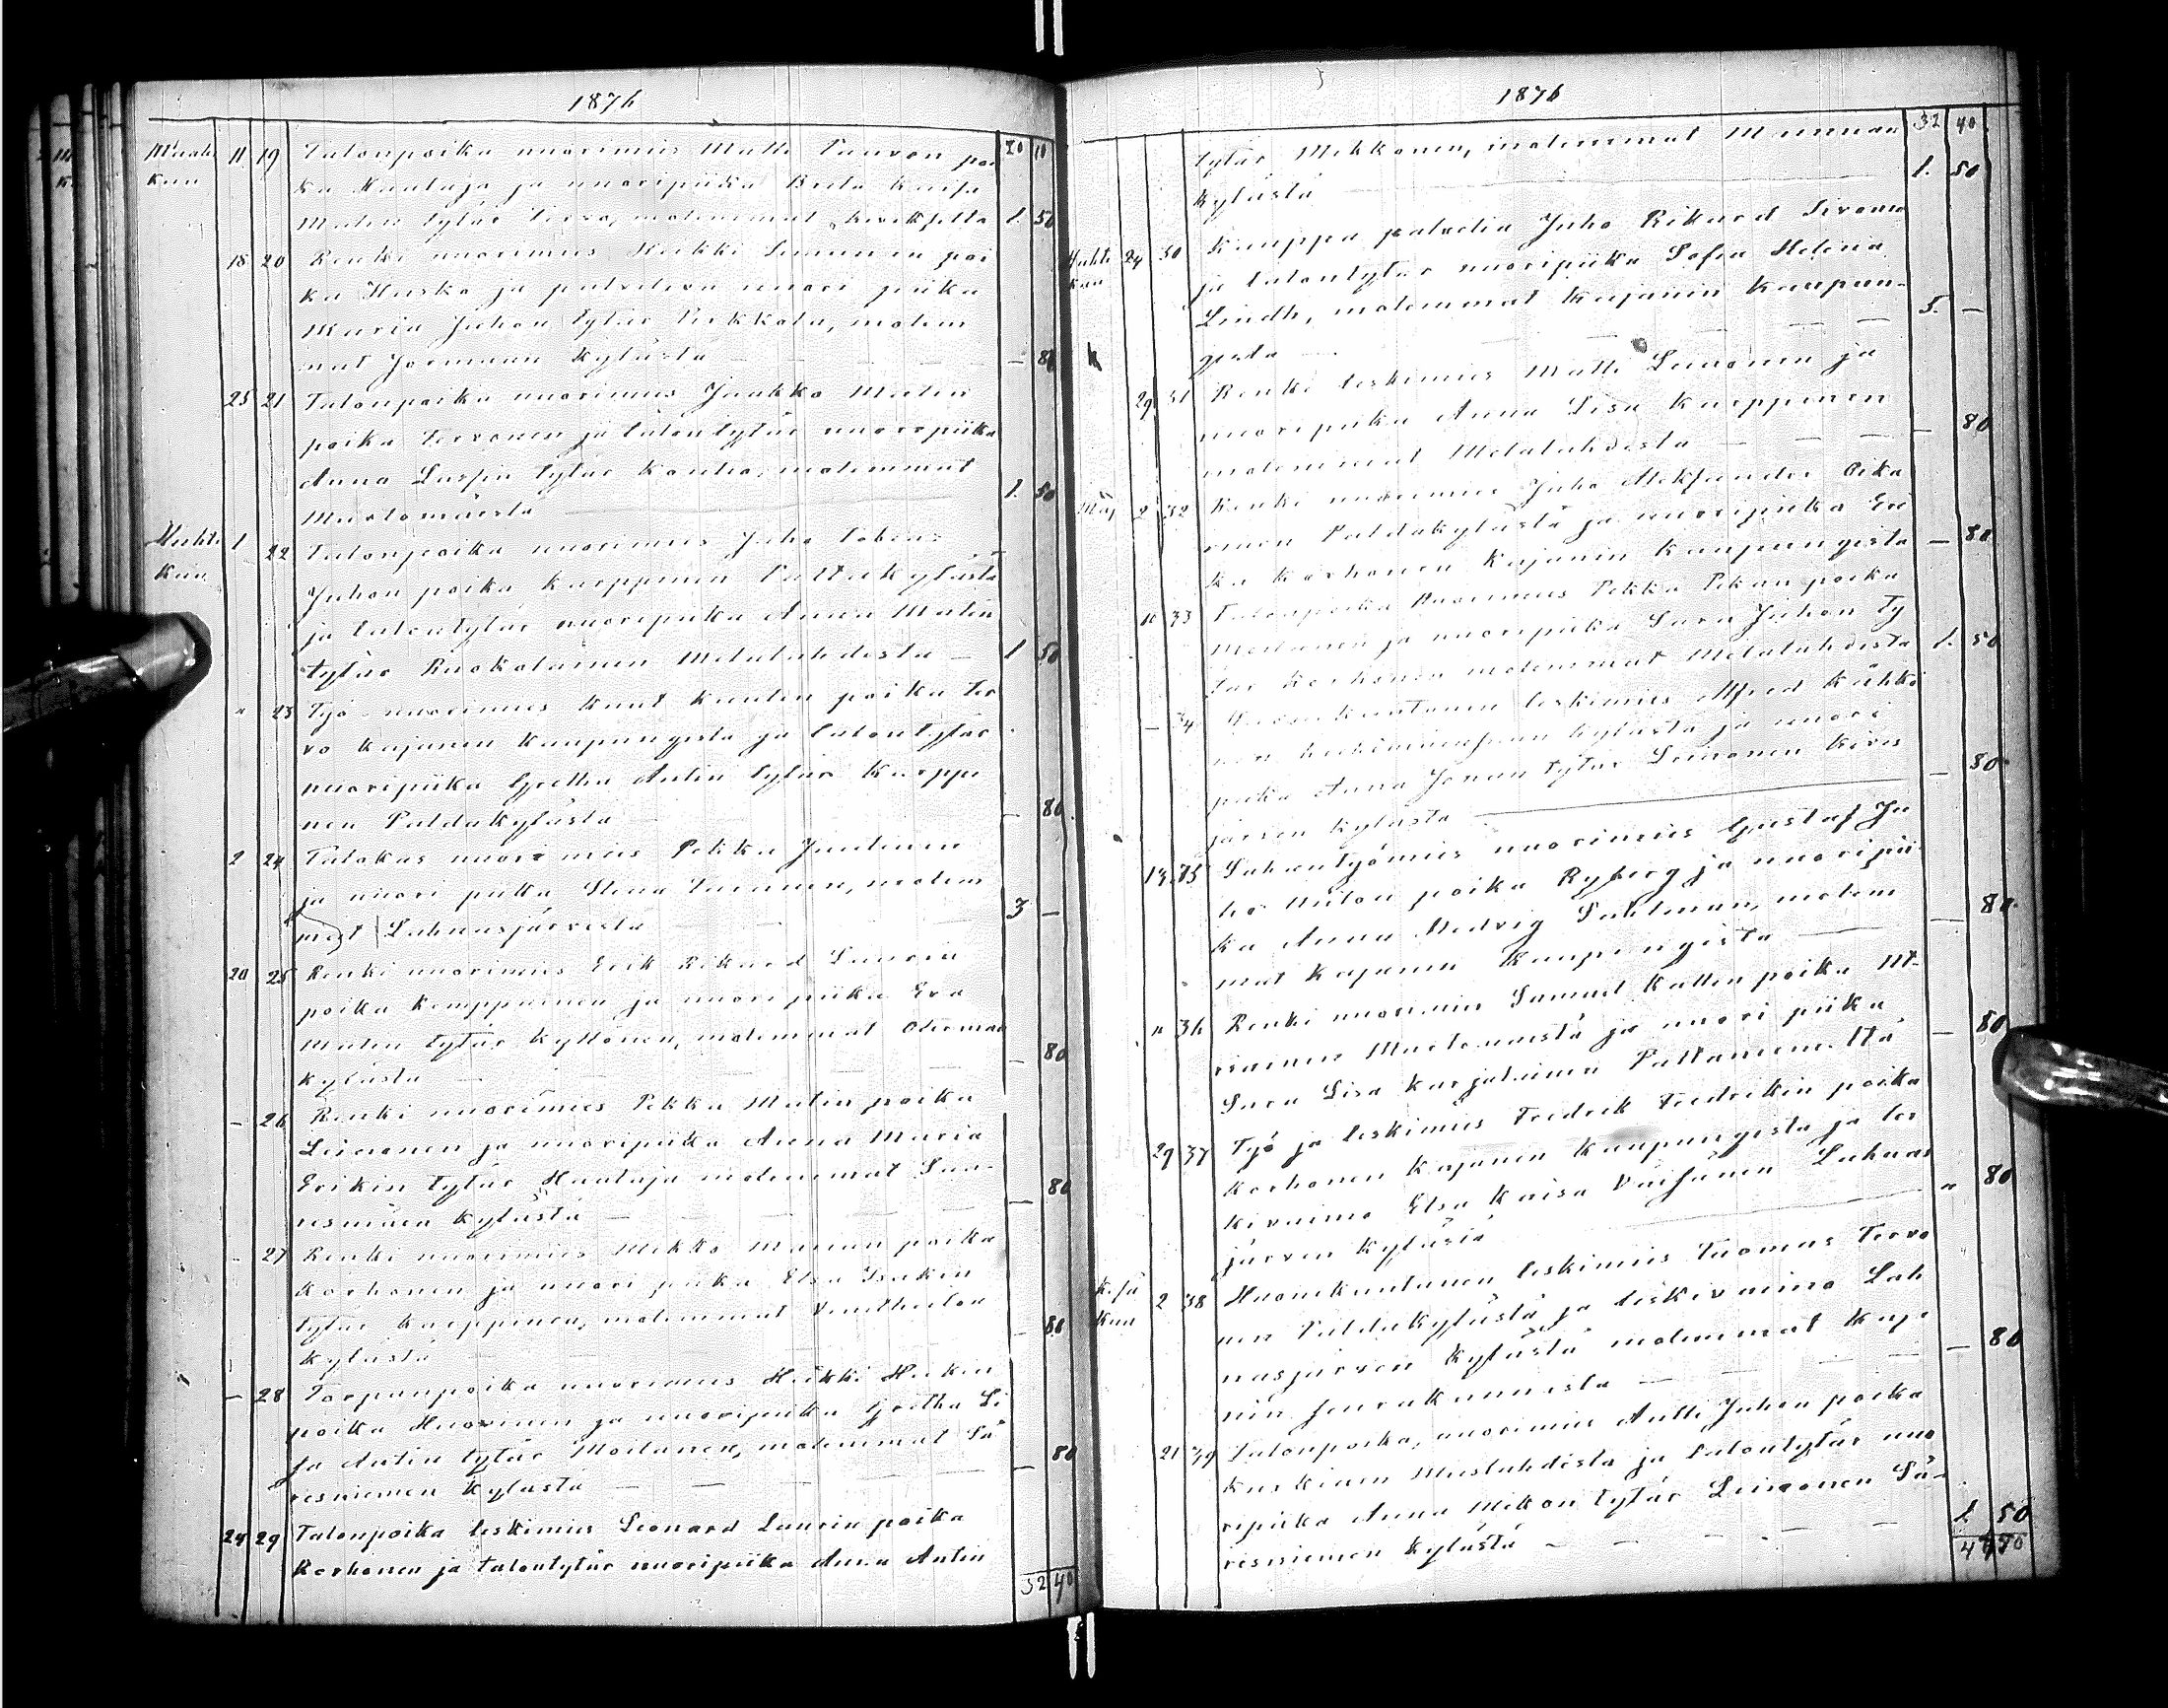 1876
Maalis 11 19 Talonpoika nuorimies Matti Paavon poi 20 10
kuu ka Hautaja ja nuoripiika Brita Kaisa
Matin tytär Tervo, molemmat 1. 50
18 20 Renki nuorimies Heikki poi
ka Huusko ja palveleva nuori piika
Maria Juhon tytär Pirkkola, molem
mat Jormuan kylästä — 80
25 21 Talonpoika nuorimies Jaakko Matin
poika Tervonen ja talontytär nuoripiika
Anna tytär Kontio, molemmat
Murtomäestä 1. 50
Huhti 1 22 Talonpoika nuorimies Juho Tobias
kuu Juhon poika Karppinen Paltakylästä
ja talontytär nuoripiika Anna Matin
tytär Ruokolainen Melalahdesta — 1 50
" 23 Työ nuorimies Knut Knutin poika Ter
vo Kajanin Kaupungista ja talontytär
nuoripiika Gretha Antin tytär Karppi
nen Paldakylästä — 80
2 24 Talokas nuorimies Pekka Juntunen
ja nuori piika Stina Tuomnen, molem
mat Lahnasjärvestä 3 —
20 25 Renki nuorimies Erik Rikard Laurin
poika Kemppainen ja nuori piika Eva
Matin tytär Kyllönen, molemmat
kylästä — 80
— 26 Renki nuorimies Pekka Matin poika
Leinonen ja nuoripiika Anna Maria
Erikin tytär Hautaja molemmat Saa-
resmäen kylästä — 80
— 27 Renki nuorimies Mikko Manun poika
Korhonen ja nuori piika Elsa Isakin
tytär Karppinen, molemmat
kylästä — 80
— 28 Torpanpoika nuorimies Heikki Heikin
poika Huovinen ja nuoripiika Gretha Li
sa Antin tytär Moilanen, molemmat Sä
resniemen kylästä — 80
24 29 Talonpoika leskimies Leonard Laurin poika
Korhonen ja talontytär nuoripiika Anna Antin
32 40
1876
tytär Mikkonen, molemmat 32 40
kylästä 1. 50
Huhti 24 30 Kauppa palvelia Juho Rikard Sivonen
kuu ja talontytär nuoripiika Sofia Helena
Lindh, molemmat Kajanin Kaupun-
gista 5. —
29 31 Renki leskimies Matti Leinonen ja
nuoripiika Anna Lisa Karppinen
molemmat Melalahdesta — 80
Maj 2 32 Renki nuorimies Juho Aleksander Oika
rinen Paldakylästä ja nuoripiika Eri
ka Korhonen Kajanin Kaupungista — 80
10 33 Talonpoika Nuorimies Pekka Pekan poika
Moilanen ja nuoripiika Sara Juhon ty
tär Korhonen molemmat Melalahdesta 1. 50
— 34 leskimies Alfred Kähkö
nen kylästä ja nuori
piika Anna Jonan tytär Leinonen Kives
järven kylästä — 80
13. 35 Sahantyömies nuorimies Gustaf Ju
ho poika Ryberg ja nuoripii
ka Anna Hedvig Sahlman, molem
mat Kajanin Kaupungista — 80
" 36 Renki nuorimies Samuel Kallen poika
Murtomäistä ja nuori piika
Sara Lisa Karjalainen Paltaniemeltä — 80
29 37 Työ ja leskimies Fredrik Fredrikin poika
Korhonen Kajanin Kaupungista ja les
kivaimo Elsa Kaisa Väisänen Lahnas
järven kylästä " 80
Kesä 2 38 Huonekuntanen leskimies Tuomas Tervo
kuu nen Paldakylästä ja leskivaimo Lah
nasjärven kylästä molemmat Kaja
nin seurakunnista — 80
21 39 Talonpoika, nuorimies Antti Juhon poika
Kurkinen Mieslahdesta ja talontytär nuo
ripiika Anna Mikon tytär Leinonen Sä-
resniemen kylästä 1. 50